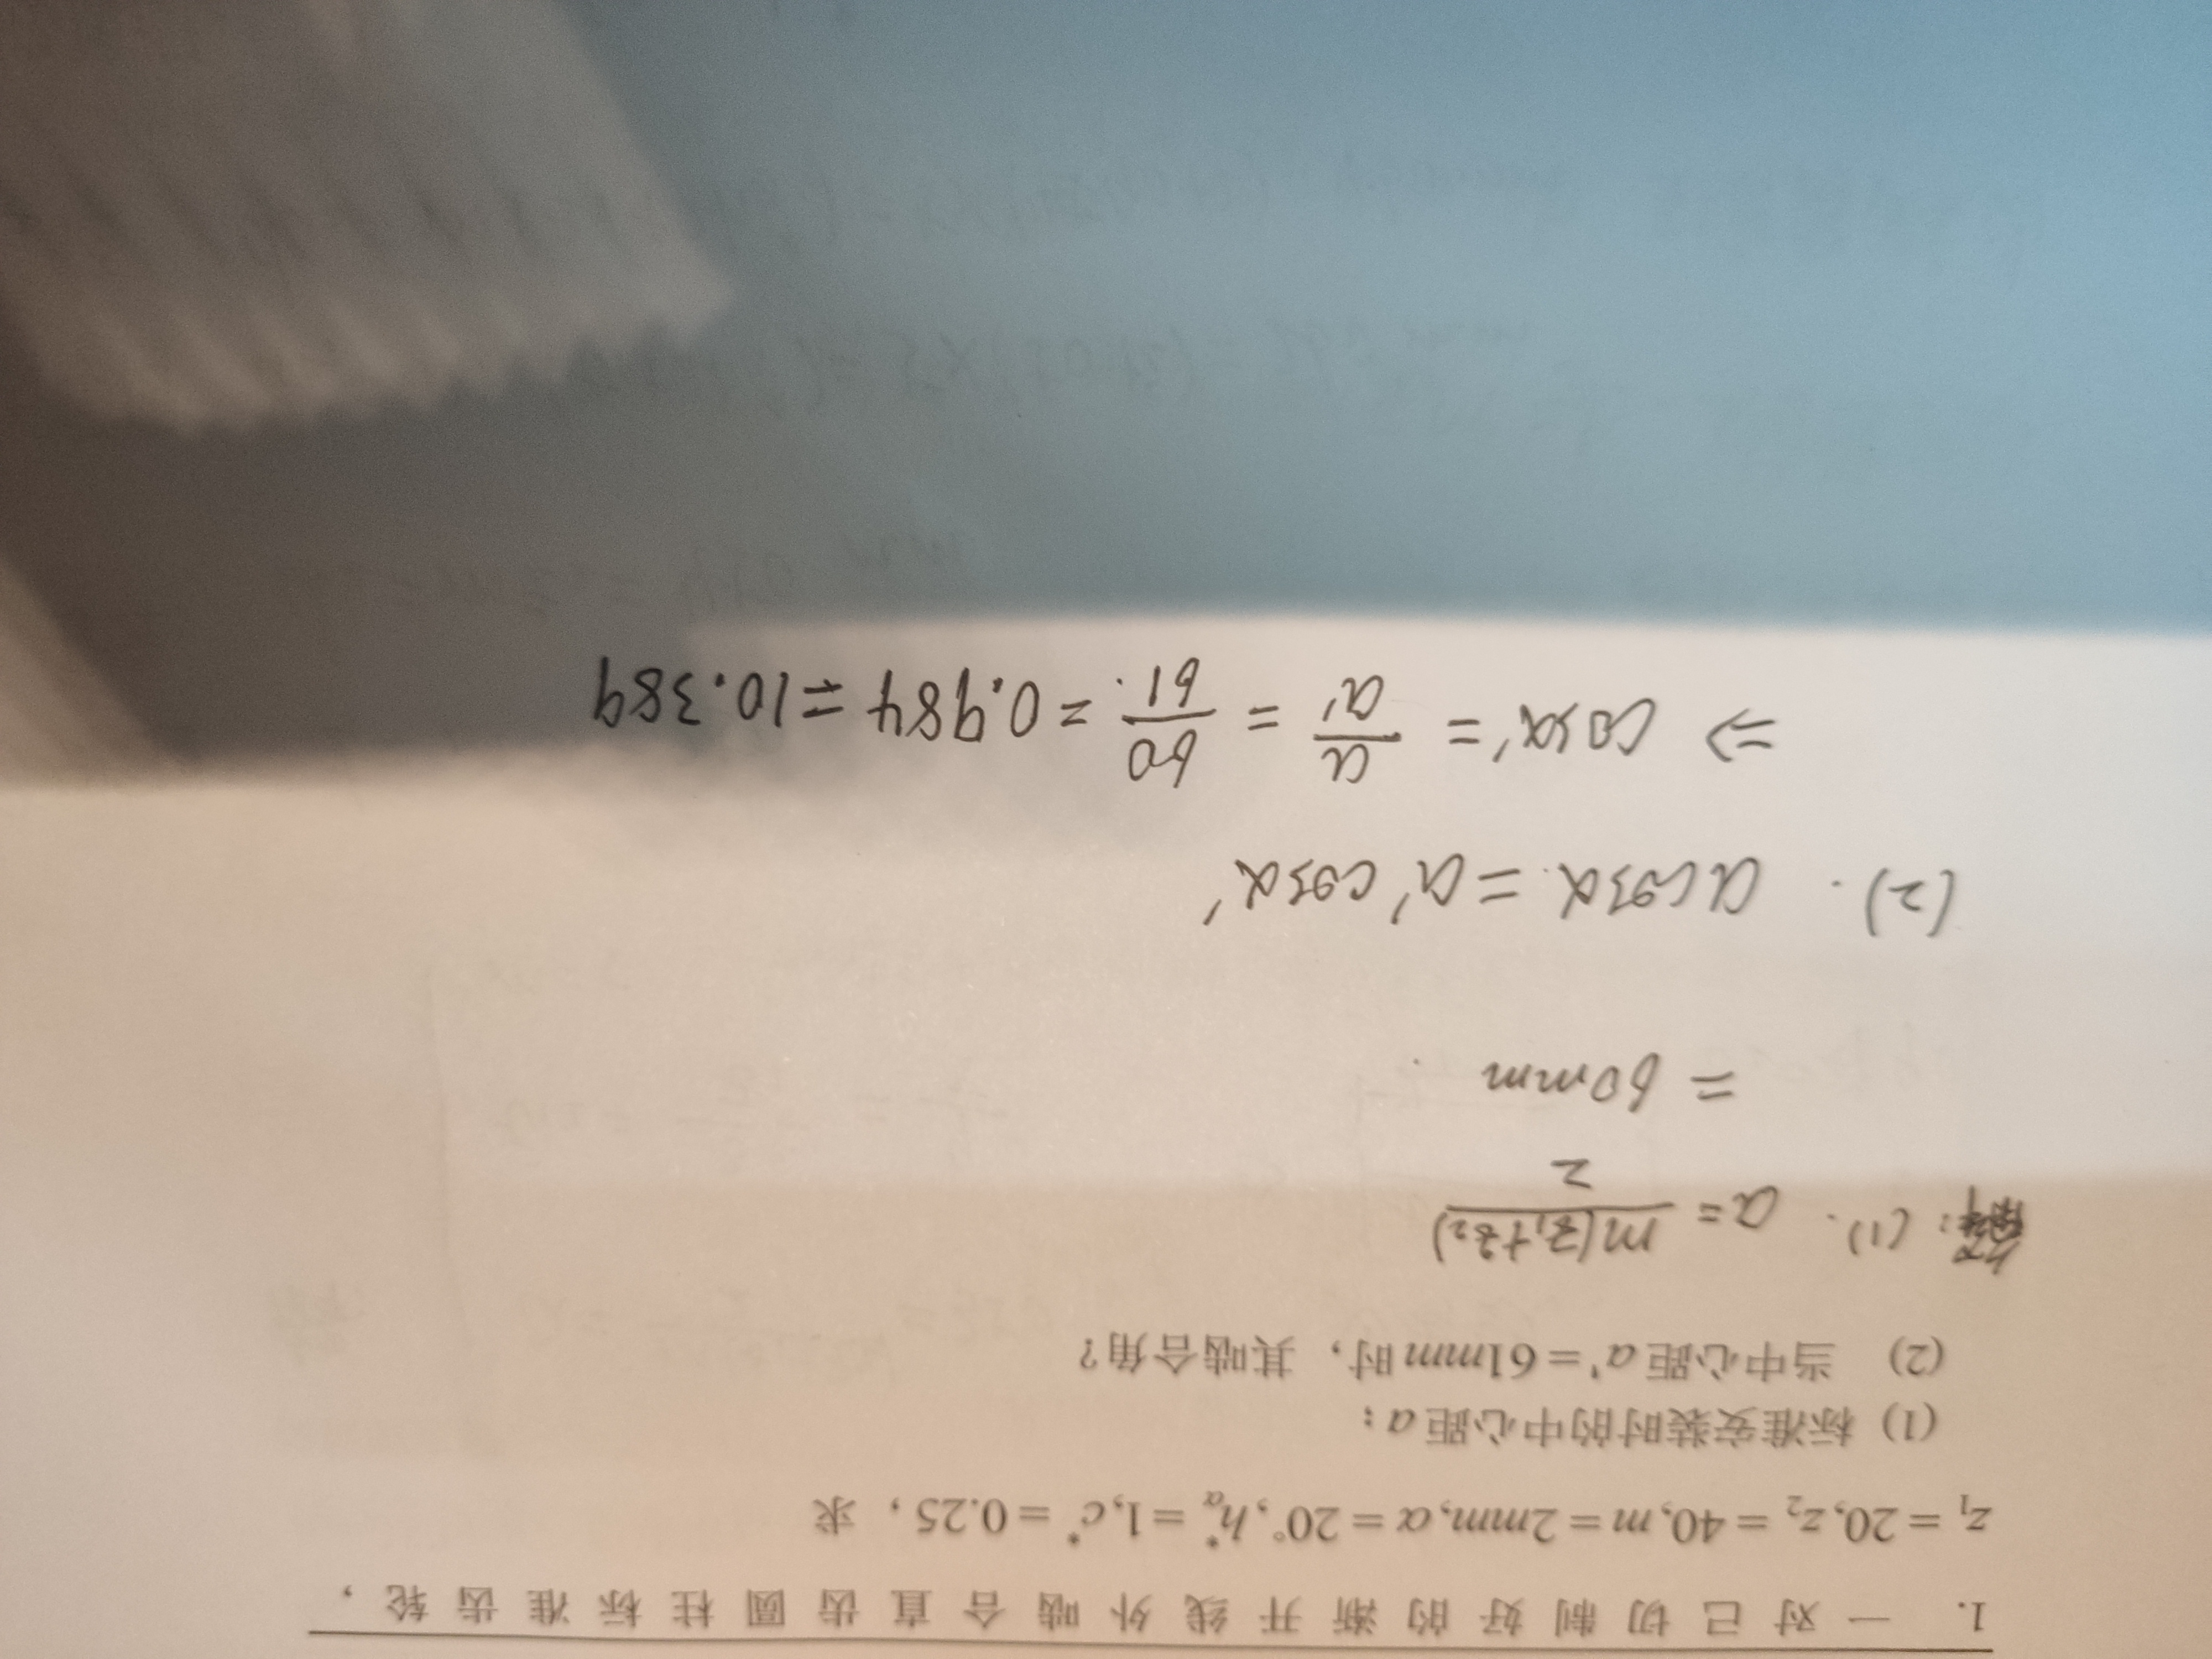 1. 一对已切制好的渐开线外啮合直齿圆柱标准齿轮，
z₁ = 20, z₂ = 40, m = 2mm, α = 20°, h*α = 1, c* = 0.25，求
(1) 标准安装时的中心距a；
(2) 当中心距a' = 61mm时，其啮合角？
解：(1). a = m(z₁+z₂)/2
= 60mm.
(2). a cosα. = a' cosα'
⇒ cosα' = a/a' = 60/61. = 0.984 = 10.389